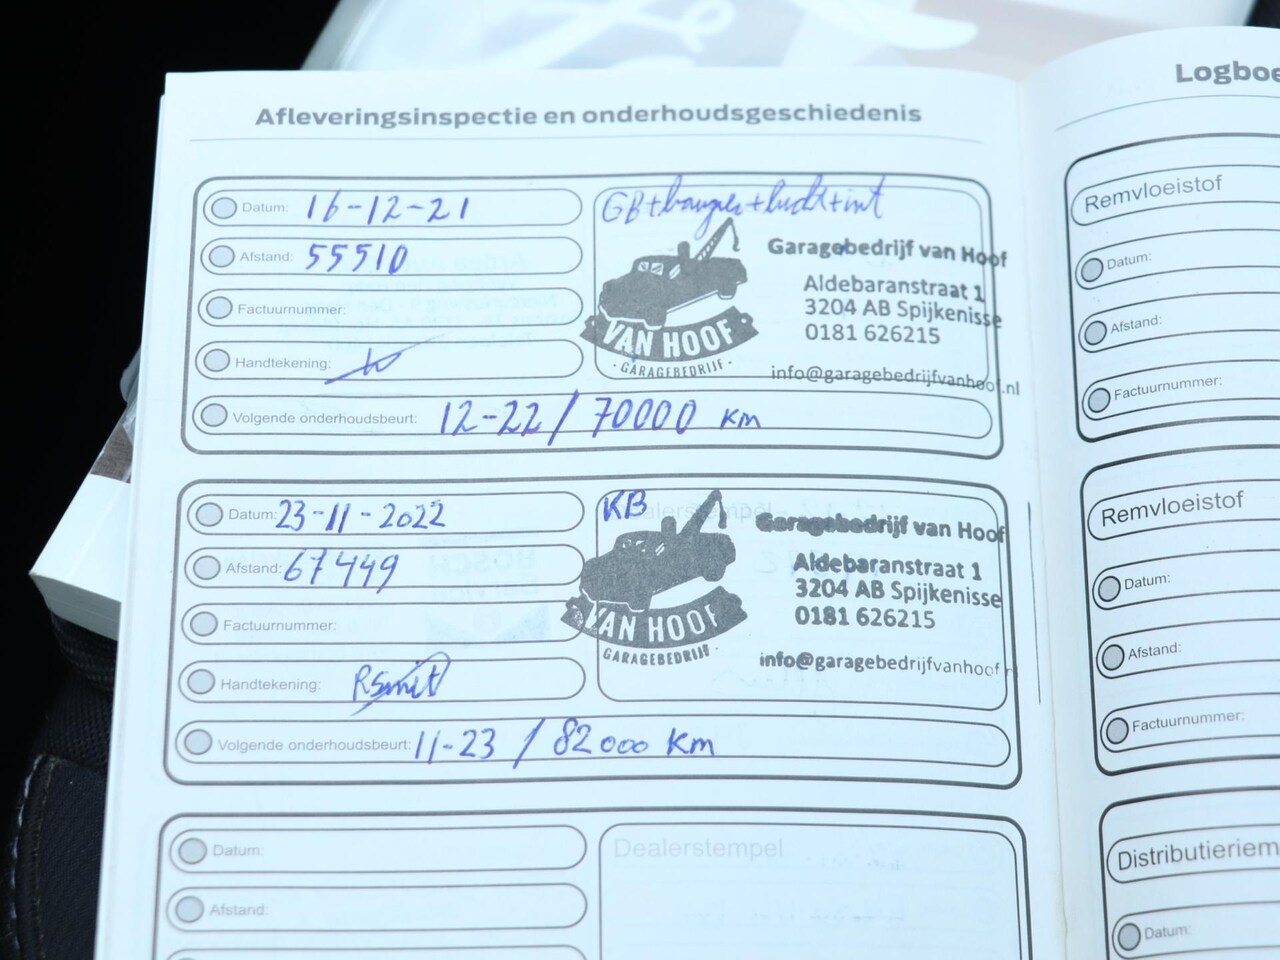 Afleveringsinspectie en onderhoudsgeschiedenis
Datum: 16-12-21
Afstand: 55510
Factuurnummer:
Handtekening:
Volgende onderhoudsbeurt: 12-22 / 70000 km
VAN HOOF
· GARAGEBEDRIJF ·
Garagebedrijf van Hoof
Aldebaranstraat 1
3204 AB Spijkenisse
0181 626215
info@garagebedrijfvanhoof.nl
Datum: 23-11-2022
Afstand: 67449
Factuurnummer:
Handtekening: RSmit
Volgende onderhoudsbeurt: 11-23 / 82000 km
KB
VAN HOOF
GARAGEBEDRIJF
Garagebedrijf van Hoof
Aldebaranstraat 1
3204 AB Spijkenisse
0181 626215
info@garagebedrijfvanhoof
Datum:
Afstand:
Dealerstempel
Logboe
Remvloeistof
Datum:
Afstand:
Factuurnummer:
Remvloeistof
Datum:
Afstand:
Factuurnummer:
Distributieriem
Datum: